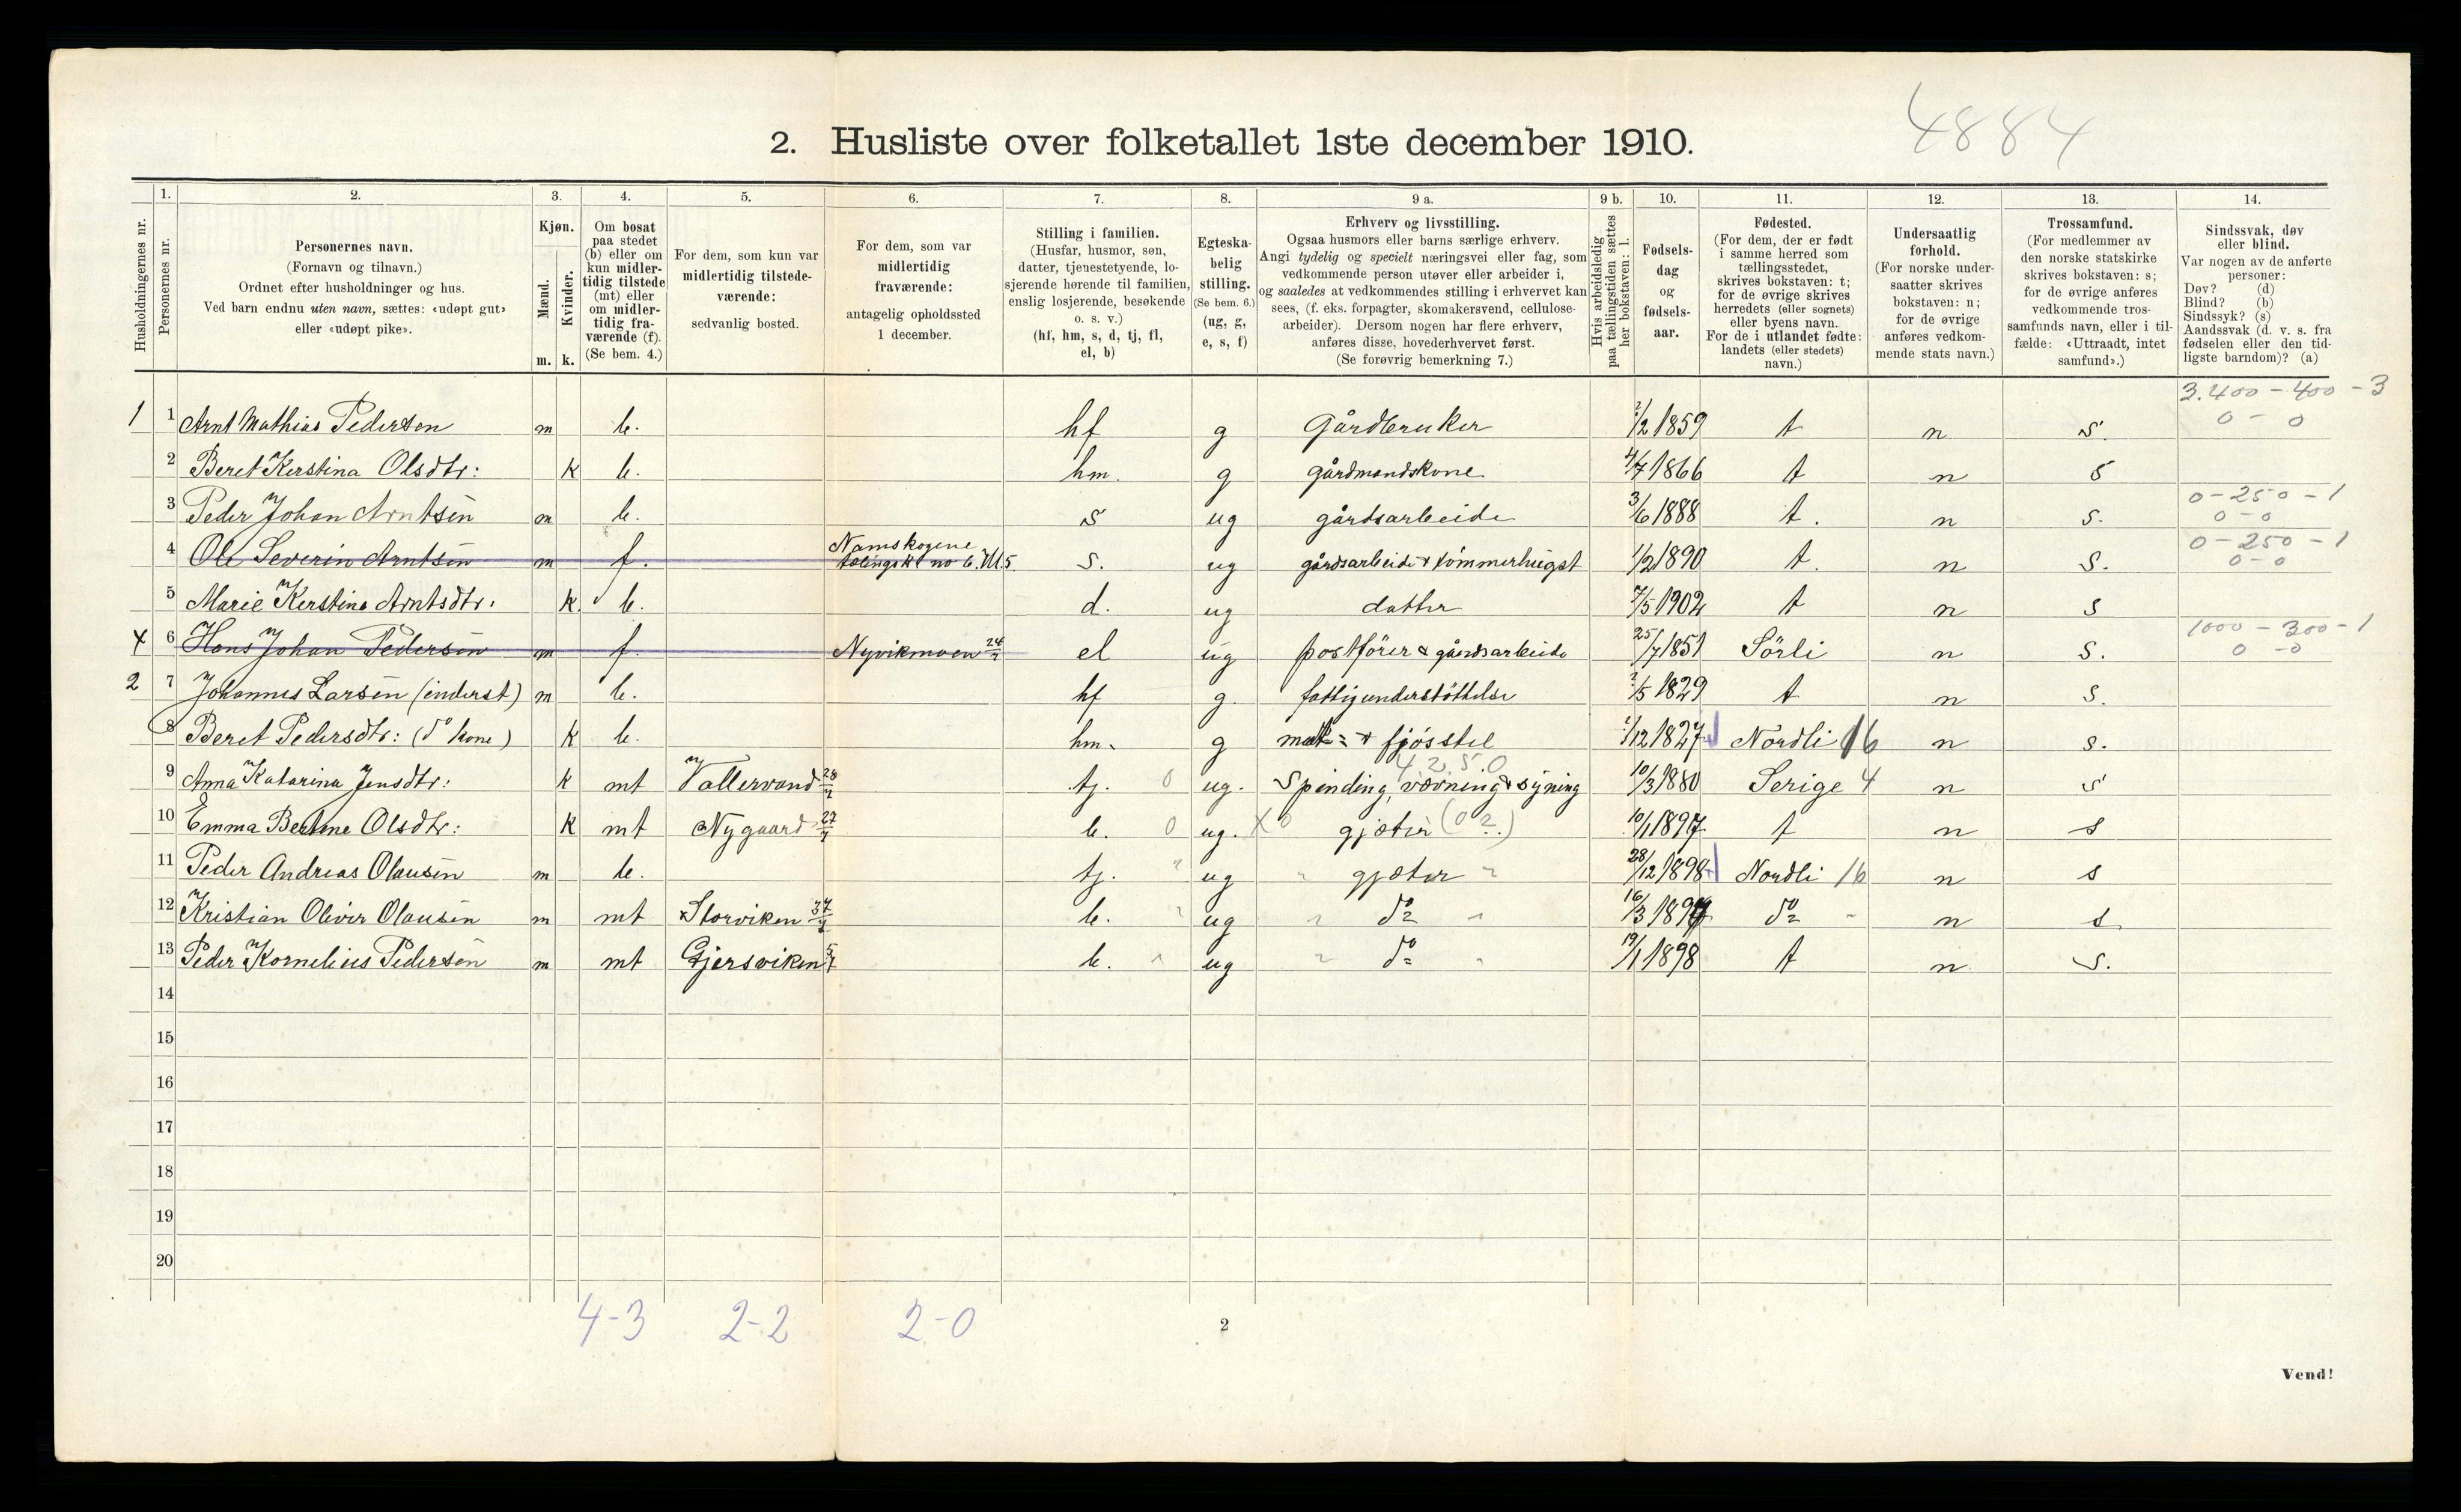 4884
2. Husliste over folketallet 1ste december 1910.
Husholdningernes nr.
1.
Personernes nr.
2.
Personernes navn.
(Fornavn og tilnavn.)
Ordnet efter husholdninger og hus.
Ved barn endnu uten navn, sættes: «udøpt gut»
eller «udøpt pike».
3.
Kjøn.
Mænd.
Kvinder.
m. k.
4.
Om bosat
paa stedet
(b) eller om
kun midler-
tidig tilstede
(mt) eller
om midler-
tidig fra-
værende (f).
(Se bem. 4.)
5.
For dem, som kun var
midlertidig tilstede-
værende:
sedvanlig bosted.
6.
For dem, som var
midlertidig
fraværende:
antagelig opholdssted
1 december.
7.
Stilling i familien.
(Husfar, husmor, søn,
datter, tjenestetyende, lo-
sjerende hørende til familien,
enslig losjerende, besøkende
o. s. v.)
(hf, hm, s, d, tj, fl,
el, b)
8.
Egteska-
belig
stilling.
(Se bem. 6.)
(ug, g,
e, s, f)
9 a.
Erhverv og livsstilling.
Ogsaa husmors eller barns særlige erhverv.
Angi tydelig og specielt næringsvei eller fag, som
vedkommende person utøver eller arbeider i,
og saaledes at vedkommendes stilling i erhvervet kan
sees, (f. eks. forpagter, skomakersvend, cellulose-
arbeider). Dersom nogen har flere erhverv,
anføres disse, hovederhvervet først.
(Se forøvrig bemerkning 7.)
9 b.
Hvis arbeidsledig
paa tællingstiden sættes
her bokstaven: l.
10.
Fødsels-
dag
og
fødsels-
aar.
11.
Fødested.
(For dem, der er født
i samme herred som
tællingsstedet,
skrives bokstaven: t;
for de øvrige skrives
herredets (eller sognets)
eller byens navn.
For de i utlandet fødte:
landets (eller stedets)
navn.)
12.
Undersaatlig
forhold.
(For norske under-
saatter skrives
bokstaven: n;
for de øvrige
anføres vedkom-
mende stats navn.)
13.
Trossamfund.
(For medlemmer av
den norske statskirke
skrives bokstaven: s;
for de øvrige anføres
vedkommende tros-
samfunds navn, eller i til-
fælde: «Uttraadt, intet
samfund».)
14.
Sindssvak, døv
eller blind.
Var nogen av de anførte
personer:
Døv? (d)
Blind? (b)
Sindssyk? (s)
Aandssvak (d. v. s. fra
fødselen eller den tid-
ligste barndom)? (a)
3.400 - 400 - 3
0 - 0
1 1 Arnt Mathias Pedersen m b. hf g Gårdbruker ?/2 1859 t n s.
2 Beret Kerstina Olsdtr: k b. hm. g gårdmandskone 4/7 1866 t n s
0 - 250 - 1
0 - 0
3 Peder Johan Arntsen m b. s ug gårdsarbeide 3/6 1888 t. n s.
0 - 250 - 1
0 - 0
4 Ole Severin Arntsen m f. Namskogene s. ug gårdsarbeide & tömmerhugst 1/2 1890 t. n s.
5 Marie Kerstine Arntsdtr. k. b. d. ug datter 7/5 1902 t n s
1000 - 300 - 1
0 - 0
x 6 Hans Johan Pedersen m f. Nyvikmoen 24/2 el ug postförer & gaardsarbeide 25/7 1851 Sörli n s.
2 7 Johannes Larsen (inderst) m b. hf g. fattigunderstöttelse ?/5 1829 t n s.
8 Beret Pedersdtr: (do kone) k b. hm. g mat= & fjösstel ?/12 1827 Nordli 16 n s.
4250
9 Anna Katarina Jensdtr: k mt Vallervand tj. 0 ug. Spinding, vævning & syning 10/3 1880 Serige 4 n s
10 Emma Bertine Olsdtr: k mt Nygaard b. 0 ug. X 0 gjæter (02.) 10/1 1897 t n s
11 Peder Andreas Olausen m b. tj. " ug " gjæter " 28/12 1898 Nordli 16 n s
12 Kristian Oliver Olausen m mt Storviken b. " ug " do " 16/3 189 do " n s.
13 Peder Kornelius Pedersen m mt Gjersviken b. " ug " do " 19/1 1898 t n s.
14
15
16
17
18
19
20
4-3 2-2 2-0
2
Vend!